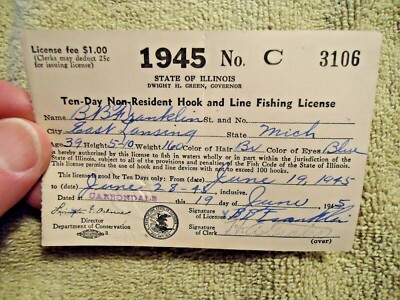 License fee $1.00
(Clerks may deduct 25c
for issuing license)
1945 No. C 3106
STATE OF ILLINOIS
DWIGHT H. GREEN, GOVERNOR
Ten-Day Non-Resident Hook and Line Fishing License
Name B B Franklin St. and No.
City East Lansing State Mich
Age 39 Height 5-10 Weight 160 Color of Hair Br Color of Eyes Blue
is hereby authorized by this license to fish in waters wholly or in part within the jurisdiction of the
State of Illinois, subject to all of the provisions and conditions of the Fish Code of the State of Illinois. This
license does not permit the use of trot lines with not to exceed 100 hooks.
This license good for Ten Days only: From (date) June 19, 1945
to (date) June 28-45 inclusive.
Dated at CARBONDALE this 19 day of June 1945
Signature of Licensee B B Franklin
Director
Department of Conservation
Signature
of Clerk
(over)